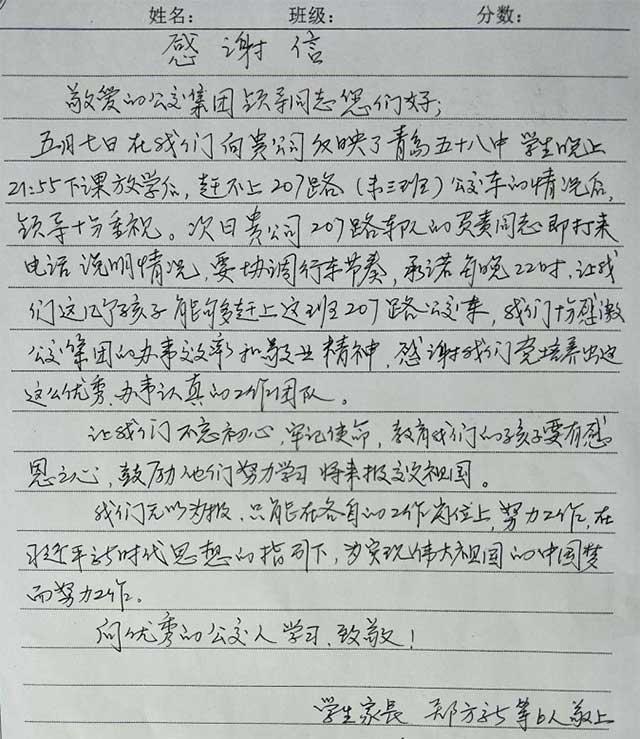 姓名： 班级： 分数：
感谢信
敬爱的公交集团领导同志您们好；
五月七日在我们向贵公司反映了青岛五十八中学生晚上
21:55下课放学后，赶不上207路（第三班）公交车的情况后，
领导十分重视。次日贵公司207路车队的负责同志即打来
电话说明情况，要协调行车节奏，承诺每晚22时，让我
们这几个孩子能够多赶上这班207路公交车，我们十分感激
公交集团的办事效率和敬业精神，感谢我们党培养出这
这么优秀、办事认真的工作团队。
让我们不忘初心，牢记使命，教育我们的孩子要有感
恩之心，鼓励他们努力学习将来报效祖国。
我们无以为报，只能在各自的工作岗位上，努力工作，在
习近平新时代思想的指引下，为实现伟大祖国的中国梦
而努力工作。
向优秀的公交人学习，致敬！
学生家长 郑方新等6人敬上